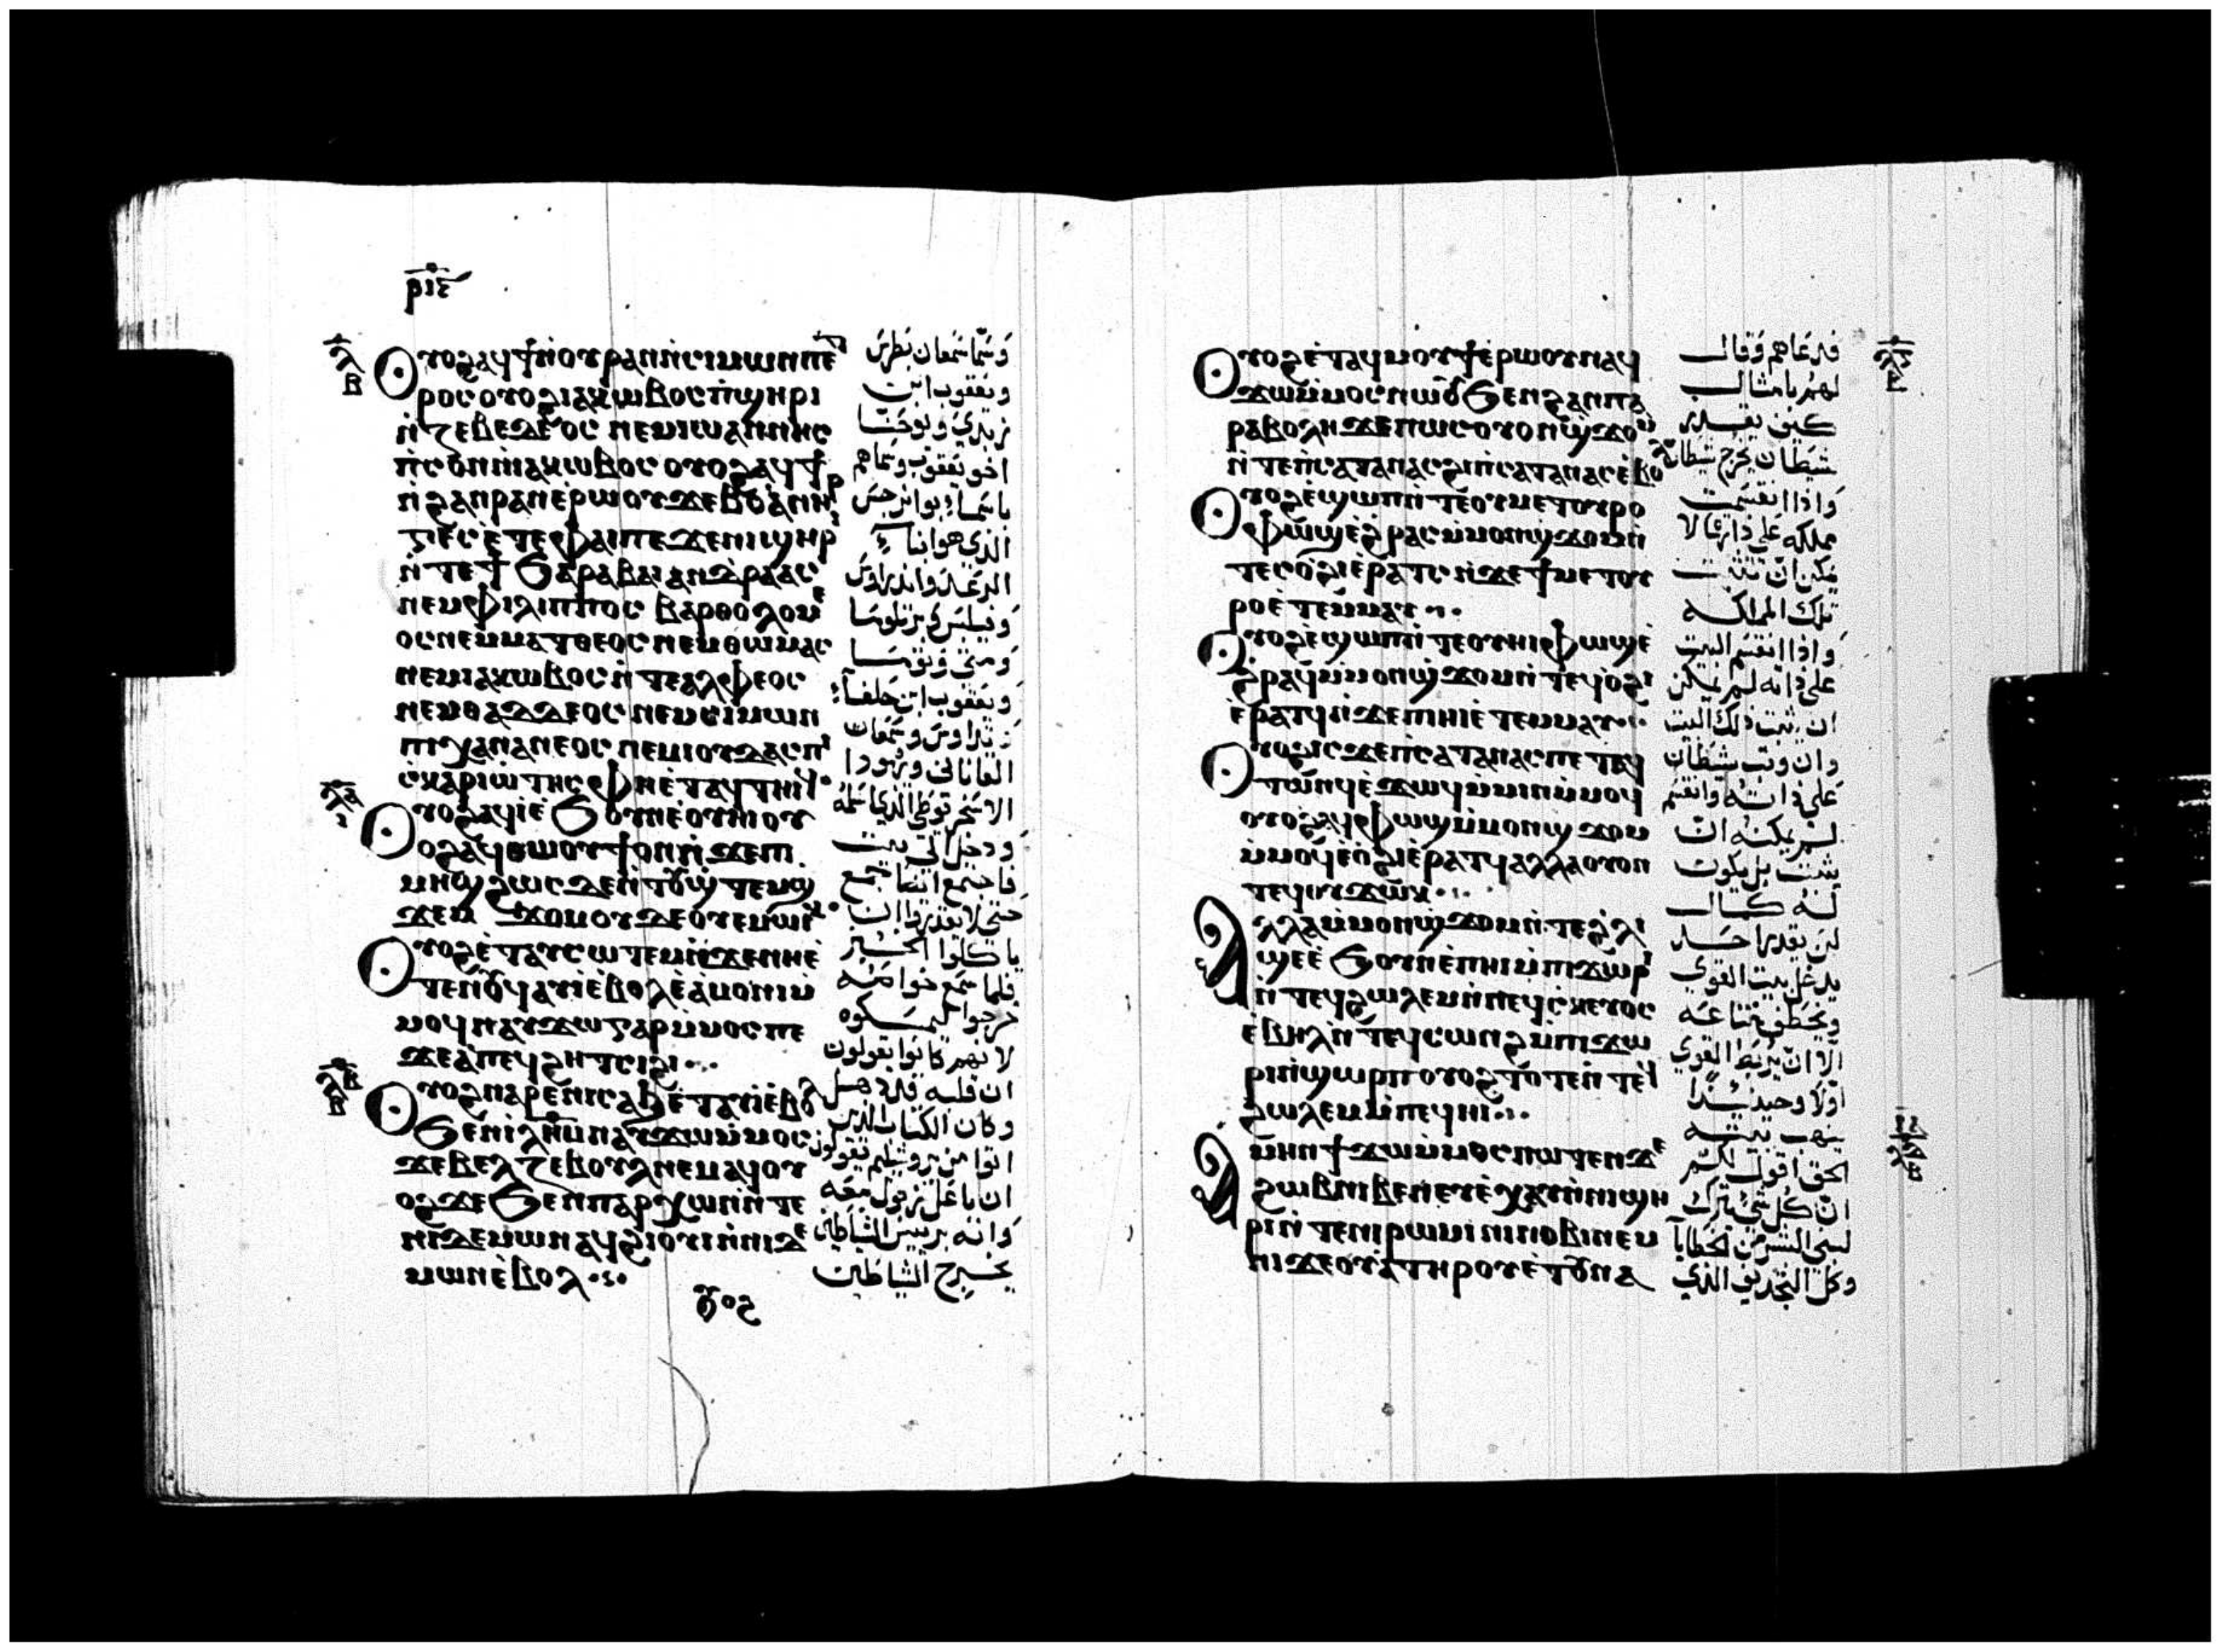 ⲣⲓⲉ
ⲟⲩⲟϩ ⲁϥϯ ⲛ̀ⲟⲩⲣⲁⲛ ⲛ̀ⲥⲓⲙⲱⲛ ⲡⲉ
ⲣⲟⲥ ⲟⲩⲟϩ ⲓⲁⲕⲱⲃⲟⲥ ⲡ̀ϣⲏⲣⲓ
ⲛ̀ⲍⲉⲃⲉⲇⲉⲟⲥ ⲛⲉⲙ ⲓⲱⲁⲛⲛⲏⲥ
ⲡ̀ⲥⲟⲛ ⲛ̀ⲓⲁⲕⲱⲃⲟⲥ ⲟⲩⲟϩ ⲁϥϯ
ⲛ̀ϩⲁⲛⲣⲁⲛ ⲉ̀ⲣⲱⲟⲩ ϫⲉ ⲃⲟⲁⲛⲏ
ⲣⲅⲉⲥ ⲉ̀ⲧⲉ ⲫⲁⲓ ⲡⲉ ϫⲉ ⲛⲓϣⲏⲣⲓ
ⲛ̀ⲧⲉ ϯϧⲁⲣⲁⲃⲁⲓ ⲁⲛⲇⲣⲉⲁⲥ
ⲛⲉⲙ ⲫⲓⲗⲓⲡⲡⲟⲥ ⲃⲁⲣⲑⲟⲗⲟⲙⲉ
ⲟⲥ ⲛⲉⲙ ⲙⲁⲧⲑⲉⲟⲥ ⲛⲉⲙ ⲑⲱⲙⲁⲥ
ⲛⲉⲙ ⲓⲁⲕⲱⲃⲟⲥ ⲛ̀ⲧⲉ ⲁⲗⲫⲉⲟⲥ
ⲛⲉⲙ ⲑⲁⲇⲇⲉⲟⲥ ⲛⲉⲙ ⲥⲓⲙⲱⲛ
ⲡⲓⲭⲁⲛⲁⲛⲉⲟⲥ ⲛⲉⲙ ⲓⲟⲩⲇⲁⲥ ⲡⲓ
ⲥ̀ⲕⲁⲣⲓⲱⲧⲏⲥ ⲫⲏ ⲉ̀ⲧⲁϥⲧⲏⲓϥ
ⲟⲩⲟϩ ⲁϥⲓ̀ ⲉ̀ϧⲟⲩⲛ ⲉ̀ⲟⲩⲏⲓ ⲟⲩ
ⲟϩ ⲁϥⲑⲱⲟⲩϯ ⲟⲛ ⲛ̀ϫⲉ ⲡⲓ
ⲙⲏϣ ϩⲱⲥ ϫⲉ ⲛ̀ⲧⲟⲩϣ̀ⲧⲉⲙϣ
ϫⲉⲙ ϫⲟⲙ ⲟⲩⲇⲉ ⲟⲩⲉⲙ ⲱⲓⲕ
ⲟⲩⲟϩ ⲉ̀ⲧⲁⲩⲥⲱⲧⲉⲙ ⲛ̀ϫⲉ ⲛⲏ ⲉ̀
ⲧⲉⲛⲟⲩϥ ⲁⲩⲓ̀ ⲉ̀ⲃⲟⲗ ⲉ̀ⲁⲙⲟⲛⲓ ⲙ̀
ⲙⲟϥ ⲛⲁⲩϫⲱ ⲅⲁⲣ ⲙ̀ⲙⲟⲥ ⲡⲉ
ϫⲉ ⲁ ⲡⲉϥϩⲏⲧ ⲥⲓϩⲓ
ⲟⲩⲟϩ ⲛⲁⲣⲉ ⲛⲓⲥⲁϧ ⲉ̀ⲧⲁⲩⲓ̀ ⲉ̀ⲃⲟⲗ
ϧⲉⲛ ⲓⲗⲏⲙ ⲛⲁⲩϫⲱ ⲙ̀ⲙⲟⲥ
ϫⲉ ⲃⲉⲗⲍⲉⲃⲟⲩⲗ ⲛⲉⲙⲁϥ ⲟⲩ
ⲟϩ ϫⲉ ϧⲉⲛ ⲡⲁⲣⲭⲱⲛ ⲛ̀ⲧⲉ
ⲛⲓⲇⲉⲙⲱⲛ ⲁϥϩⲓⲟⲩⲓ ⲛ̀ⲛⲓⲇⲉ
ⲙⲱⲛ ⲉ̀ⲃⲟⲗ
وسمّا سمعان بطرس
ويعقوب ابن
زبدي ويوحنّا
اخو يعقوب وسماهم
باسما بوانرجس
الذي هو ابنا
الرعد واندراوس
وفيلبس وبرتلوما
ومتى وتوما
ويعقوب ابن حلفا
وتداوس وسمعان
القاناني ويهودا
الاسخريوطي الذي اسلمه
ودخل الي بيت
فاجتمع ايضا جمع
حتى لا يقدروا ان
ياكلوا الخبز
فلما سمع ذوا معه
خرجوا ليمسكوه
لانهم كانوا يقولون
ان قلبه قد ذهل
وكان الكتاب الذين
اتوا من يروشليم يقولون
ان باعلزبول معه
وانه برييس الشياطين
يخرج الشياطين
ⲟⲩⲟϩ ⲉ̀ⲧⲁϥⲙⲟⲩϯ ⲉ̀ⲣⲱⲟⲩ ⲛⲁϥ
ϫⲱ ⲙ̀ⲙⲟⲥ ⲛⲱⲟⲩ ϧⲉⲛ ϩⲁⲛⲡⲁ
ⲣⲁⲃⲟⲗⲏ ϫⲉ ⲡⲱⲥ ⲟⲩⲟⲛ ϣ̀ϫⲟⲙ
ⲛ̀ⲧⲉ ⲡ̀ⲥⲁⲧⲁⲛⲁⲥ ϩⲓ ⲡ̀ⲥⲁⲧⲁⲛⲁⲥ ⲉ̀ⲃⲟ
ⲟⲩⲟϩ ⲉ̀ϣⲱⲡ ⲛ̀ⲧⲉ ⲟⲩⲙⲉⲧⲟⲩⲣⲟ
ⲫⲱϣ ⲉ̀ϩⲣⲁⲥ ⲙ̀ⲙⲟⲛ ϣ̀ϫⲟⲙ ⲛ̀
ⲧⲉⲥⲟ̀ϩⲓ ⲉ̀ⲣⲁⲧⲥ ⲛ̀ϫⲉ ϯⲙⲉⲧⲟⲩ
ⲣⲟ ⲉ̀ⲧⲉⲙⲙⲁⲩ
ⲟⲩⲟϩ ⲉ̀ϣⲱⲡ ⲛ̀ⲧⲉ ⲟⲩⲏⲓ ⲫⲱϣ ⲉ̀
ϩⲣⲁϥ ⲙ̀ⲙⲟⲛ ϣ̀ϫⲟⲙ ⲛ̀ⲧⲉϥⲟϩⲓ
ⲉ̀ⲣⲁⲧϥ ⲛ̀ϫⲉ ⲡⲓⲏⲓ ⲉ̀ⲧⲉⲙⲙⲁⲩ
ⲟⲩⲟϩ ⲓⲥϫⲉ ⲡ̀ⲥⲁⲧⲁⲛⲁⲥ ⲡⲉ ⲧⲁϥ
ⲧⲱⲛϥ ⲉ̀ϫⲱϥ ⲙ̀ⲙⲓⲛ ⲙ̀ⲙⲟϥ
ⲟⲩⲟϩ ⲁϥⲫⲱϣ ⲙ̀ⲙⲟⲛ ϣ̀ϫⲟⲙ
ⲙ̀ⲙⲟϥ ⲉ̀ⲟ̀ϩⲓ ⲉ̀ⲣⲁⲧϥ ⲁⲗⲗⲁ ⲟⲩⲟⲛ
ⲧⲉϥ ⲟⲩϫⲱⲕ
ⲁⲗⲗⲁ ⲙ̀ⲙⲟⲛ ϣ̀ϫⲟⲙ ⲛ̀ⲧⲉ ϩ̀ⲗⲓ
ϣⲉ ⲉ̀ϧⲟⲩⲛ ⲉ̀ⲡⲏⲓ ⲙ̀ⲡⲓϫⲱⲣⲓ
ⲛ̀ⲧⲉϥϩⲱⲗⲉⲙ ⲛ̀ⲛⲉϥⲥⲕⲉⲩⲟⲥ
ⲉ̀ⲃⲏⲗ ⲛ̀ⲧⲉϥⲥⲱⲛϩ ⲙ̀ⲡⲓϫⲱ
ⲣⲓ ⲛ̀ϣⲱⲣⲡ ⲟⲩⲟϩ ⲧⲟⲧⲉ ⲛ̀ⲧⲉϥ
ϩⲱⲗⲉⲙ ⲙ̀ⲡⲉϥⲏⲓ
ⲁⲙⲏⲛ ϯϫⲱ ⲙ̀ⲙⲟⲥ ⲛⲱⲧⲉⲛ ϫⲉ
ϩⲱⲃ ⲛⲓⲃⲉⲛ ⲉⲩⲉ̀ⲭⲁⲩ ⲛ̀ⲛⲓϣⲏ
ⲣⲓ ⲛ̀ⲧⲉ ⲛⲓⲣⲱⲙⲓ ⲛⲓⲛⲟⲃⲓ ⲛⲉⲙ
ⲛⲓϫⲉⲟⲩⲁ̀ ⲧⲏⲣⲟⲩ ⲉ̀ⲧⲟⲩⲛⲁ
فدعاهم وقال
لهم بامثال
كيف يقدر
شيطان يخرج شيطان
واذا انقسمت
مملكه على ذاتها لا
يمكن ان تثبت
تلك المملكه
واذا انقسم البيت
على ذاته لم يمكن
ان يثبت ذلك البيت
وان وثب شيطان
على ذاته وانقسم
لم يمكنه ان
يثبت بل يكون
له كمال
لن يقدر احد
يدخل بيت القوي
ويخطف متاعه
الا ان يربط القوي
اولا وحينيذ
ينهب بيته
الحق اقول لكم
ان كل شي يترك
لبني البشر من الخطايا
وكل التجديف الذي